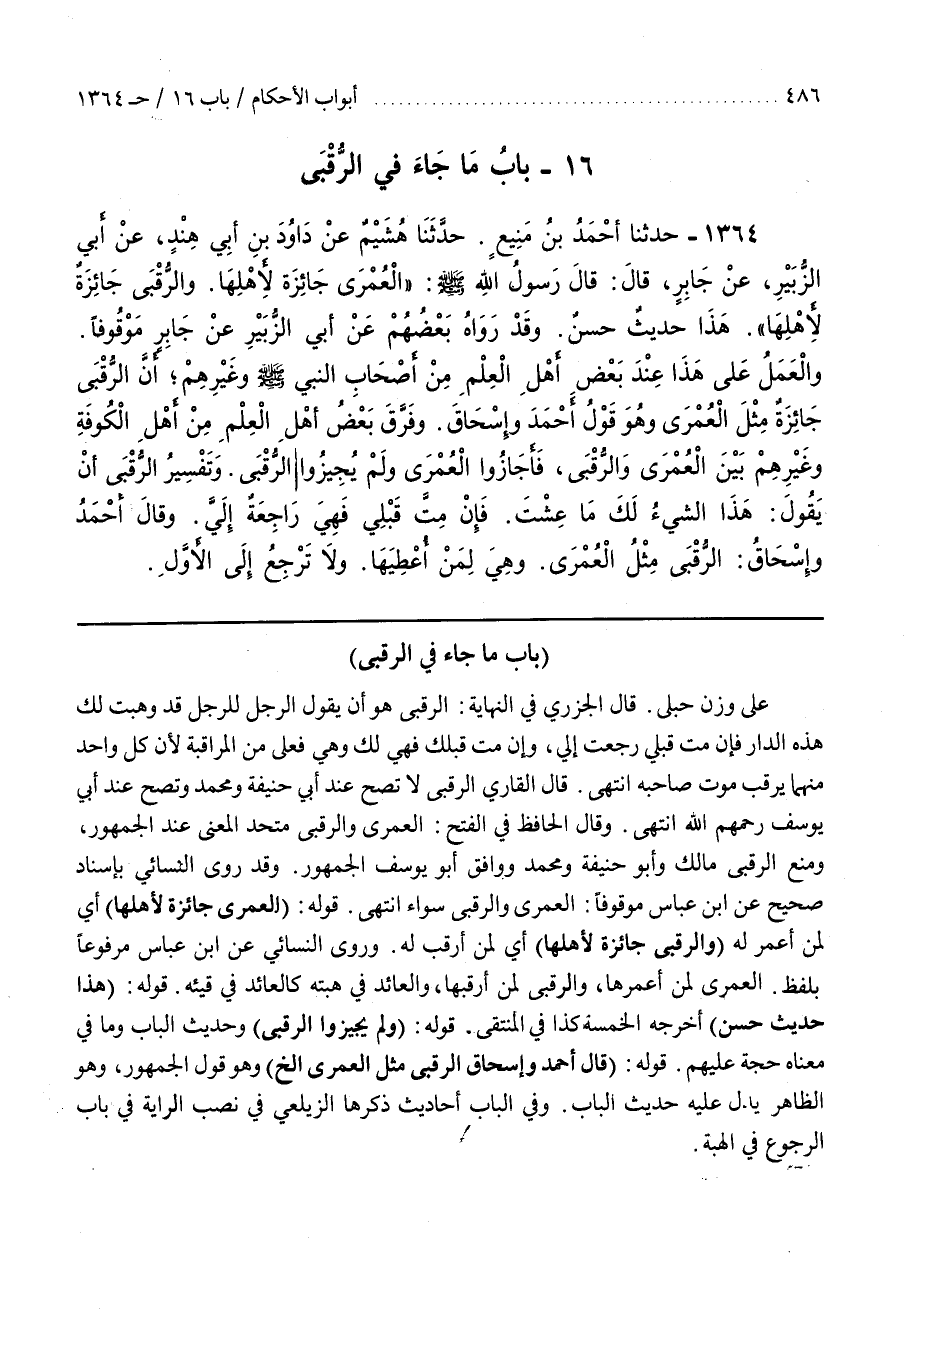 ٤٨٦ ................................................ أبواب الأحكام / باب ١٦ / حـ ١٣٦٤
١٦ - بابُ مَا جَاءَ في الرُّقْبَى
١٣٦٤ - حدثنا أحْمَدُ بنُ مَنِيعٍ . حدَّثَنَا هُشَيْمٌ عنْ دَاوُدَ بنِ أبِي هِنْدٍ، عنْ أَبي
الزُّبَيْرِ، عنْ جَابِرٍ، قالَ: قالَ رَسولُ اللهِ ﷺ: «الْعُمْرَى جَائِزَة لأَهْلِهَا. والرُّقْبَى جَائِزَةٌ
لأَهْلِهَا». هَذَا حديثٌ حسنٌ. وقَدْ رَوَاهُ بَعْضُهُمْ عَنْ أبي الزُّبَيْرِ عنْ جَابِرٍ مَوْقُوفاً.
والْعَمَلُ عَلى هَذَا عِنْدَ بَعْضِ أَهْلِ العِلْمِ مِنْ أَصْحَابِ النبي ﷺ وغَيْرِهِمْ؛ أَنَّ الرُّقْبَى
جَائِزَةٌ مِثْلَ الْعُمْرَى وهُوَ قَوْلُ أَحْمَدَ وإِسْحَاقَ. وفَرَّقَ بَعْضُ أهْلِ الْعِلْمِ مِنْ أَهْلِ الْكُوفَةِ
وغَيْرِهِمْ بَيْنَ الْعُمْرَى وَالرُّقْبَى، فَأَجَازُوا الْعُمْرَى ولَمْ يُجِيزُوا الرُّقْبَى. وَتَفْسِيرُ الرُّقْبَى أنْ
يَقُولَ: هَذَا الشيءُ لَكَ مَا عِشْتَ. فَإِنْ مِتَّ قَبْلِي فَهِيَ رَاجِعَةٌ إلَيَّ. وقالَ أَحْمَدُ
وإِسْحَاقُ: الرُّقْبَى مِثْلُ الْعُمْرَى. وهِيَ لِمَنْ أُعْطِيَهَا. ولَا تَرْجِعُ إلَى الأَوَّلِ.
(باب ما جاء في الرقبى)
على وزن حبلى. قال الجزري في النهاية: الرقبى هو أن يقول الرجل للرجل قد وهبت لك
هذه الدار فإن مت قبلي رجعت إلي، وإن مت قبلك فهي لك وهي فعلى من المراقبة لأن كل واحد
منهما يرقب موت صاحبه انتهى. قال القاري الرقبى لا تصح عند أبي حنيفة ومحمد وتصح عند أبي
يوسف رحمهم الله انتهى. وقال الحافظ في الفتح: العمرى والرقبى متحد المعنى عند الجمهور،
ومنع الرقبى مالك وأبو حنيفة ومحمد ووافق أبو يوسف الجمهور. وقد روى النسائي بإسناد
صحيح عن ابن عباس موقوفاً: العمرى والرقبى سواء انتهى. قوله: (العمرى جائزة لأهلها) أي
لمن أعمر له (والرقبى جائزة لأهلها) أي لمن أرقب له. وروى النسائي عن ابن عباس مرفوعاً
بلفظ. العمرى لمن أعمرها، والرقبى لمن أرقبها، والعائد في هبته كالعائد في قيئه. قوله: (هذا
حديث حسن) أخرجه الخمسة كذا في المنتقى. قوله: (ولم يجيزوا الرقبى) وحديث الباب وما في
معناه حجة عليهم. قوله: (قال أحمد وإسحاق الرقبى مثل العمرى الخ) وهو قول الجمهور، وهو
الظاهر يدل عليه حديث الباب. وفي الباب أحاديث ذكرها الزيلعي في نصب الراية في باب
الرجوع في الهبة.